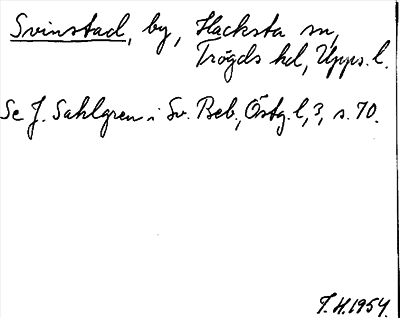 Svinstad, by, Hacksta sn,
Trögds hd, Upps. l.
Se J. Sahlgren i Sv. Beb., Östg. l, 3, s. 70.
T. H. 1954.